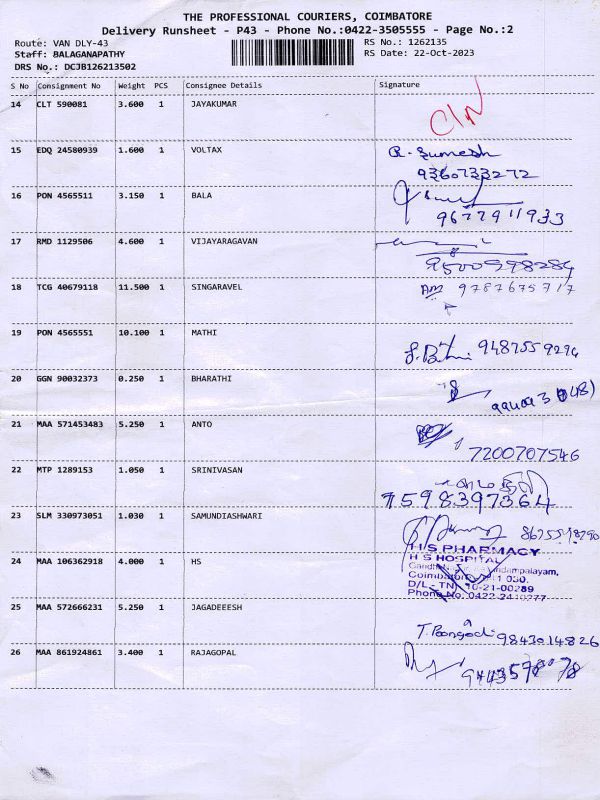 THE PROFESSIONAL COURIERS, COIMBATORE
Delivery Runsheet - P43 - Phone No.:0422-3505555 - Page No.:2
Route: VAN DLY-43 RS No.: 1262135
Staff: BALAGANAPATHY RS Date: 22-Oct-2023
DRS No.: DCJB126213502
S No Consignment No Weight PCS Consignee Details Signature
14 CLT 590081 3.600 1 JAYAKUMAR
15 EDQ 24580939 1.600 1 VOLTAX R. Sumesh
9360733272
16 PON 4565511 3.150 1 BALA
9677911933
17 RMD 1129506 4.600 1 VIJAYARAGAVAN
9500998284
18 TCG 40679118 11.500 1 SINGARAVEL 9787675717
19 PON 4565551 10.100 1 MATHI 9487559294
20 GGN 90032373 0.250 1 BHARATHI
21 MAA 571453483 5.250 1 ANTO
7200707546
22 MTP 1289153 1.050 1 SRINIVASAN
7598397364
23 SLM 330973051 1.030 1 SAMUNDIASHWARI
H S PHARMACY
24 MAA 106362918 4.000 1 HS H S HOSPITAL
Coimbatore
D/L- TN 10-21-00289
Phone No: 0422-2410277
25 MAA 572666231 5.250 1 JAGADEEESH
9843014826
26 MAA 861924861 3.400 1 RAJAGOPAL